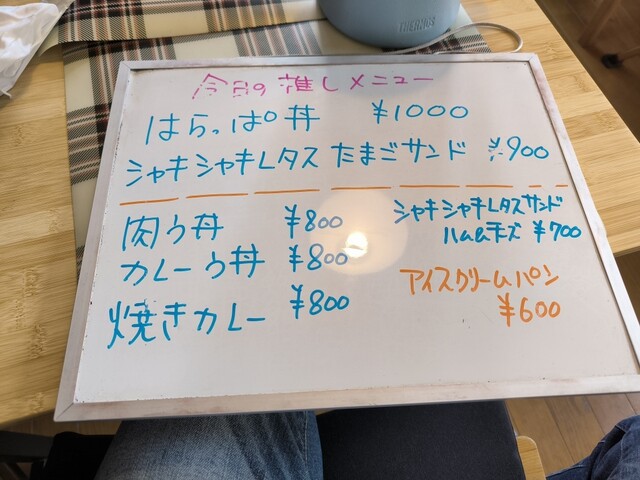 THERMOS
今月の推しメニュー
はらっぱ丼 ¥1000
シャキシャキレタス たまごサンド ¥900
肉う丼 ¥800
カレーう丼 ¥800
焼きカレー ¥800
シャキシャキレタスサンド
ハム&チーズ ¥700
アイスクリームパン
¥600